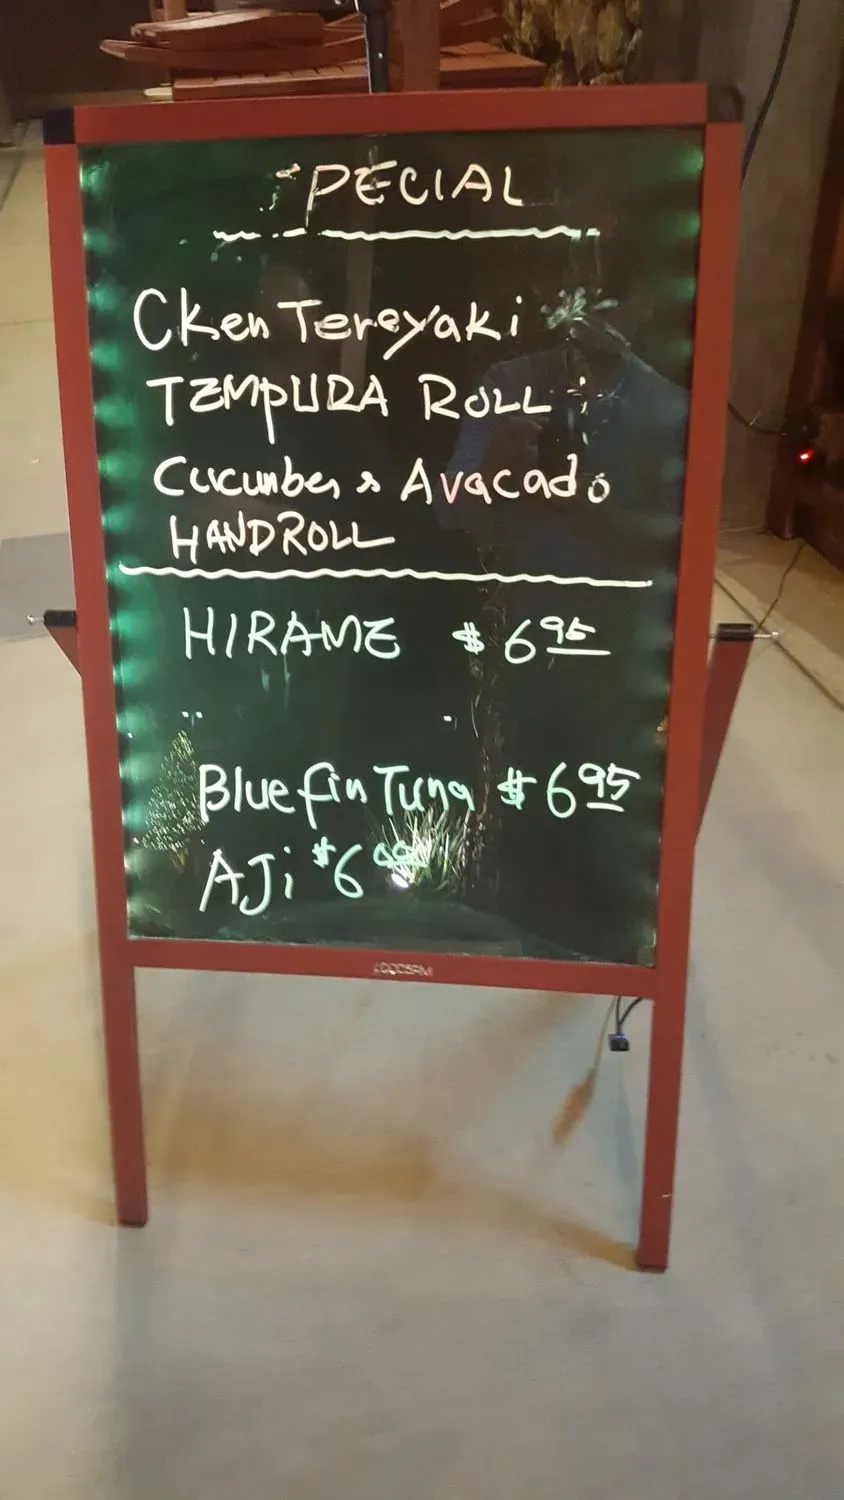 SPECIAL
Cken Tereyaki
TEMPURA ROLL
Cucumber & Avacado
HANDROLL
HIRAME $6.95
Bluefin Tuna $6.95
AJi $6